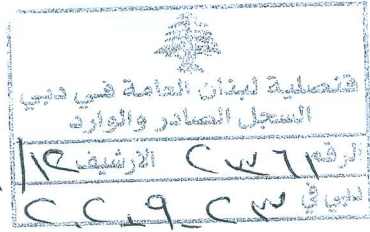 قنصلية لبنان العامة في دبي
السجل الصادر والوارد
الرقم ٢٣٦١ الأرشيف ١٢/
دبي في ٢٣-٩-٢٠٢٢